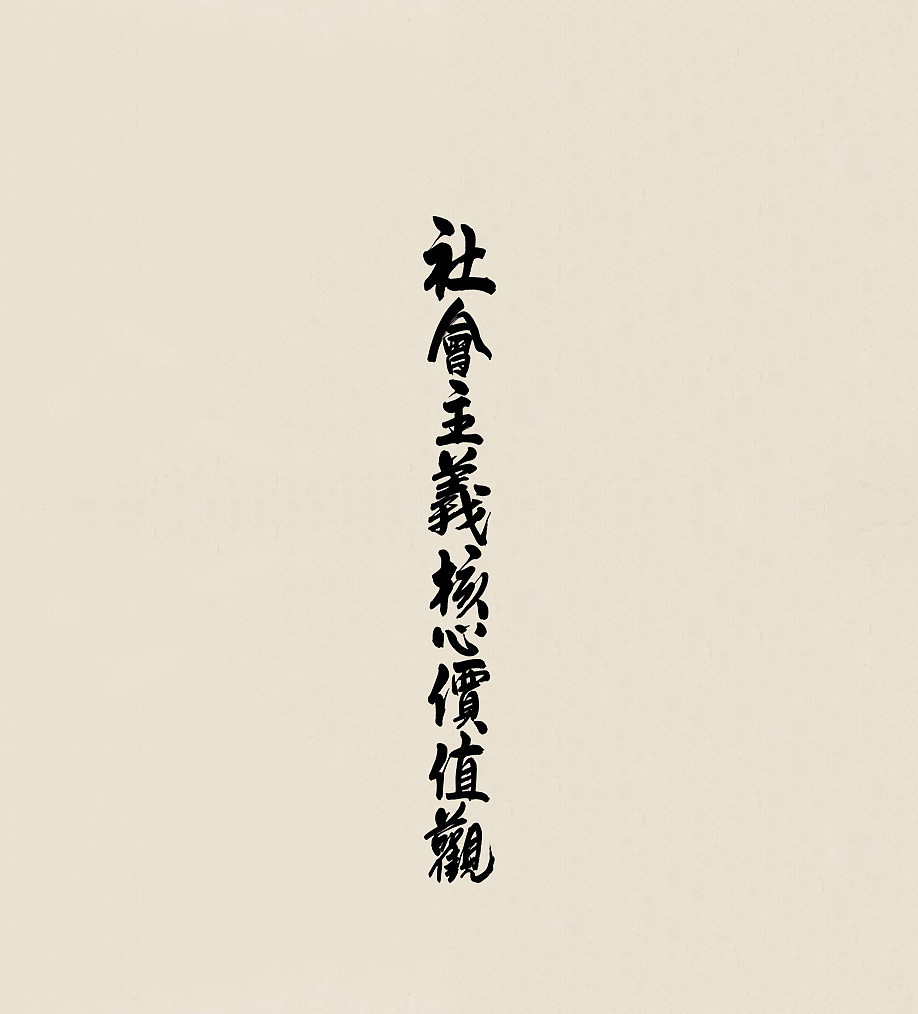 社會主義核心價值觀